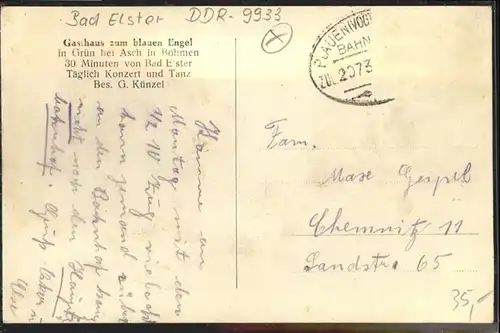 Bad Elster DDR-9933
Gasthaus zum blauen Engel
in Grün bei Asch in Böhmen
30 Minuten von Bad Elster
Täglich Konzert und Tanz
Bes. G. Künzel
PLAUEN (VOGT
BAHN
ZUG 2073
Komme am
Montag mit dem
1/2 10 Zug vielleicht
kann jemand
an den Bahnhof
nicht nach dem Haupt
bahnhof. Gruß
Fam.
Max
Chemnitz 11
Landstr. 65
35,-